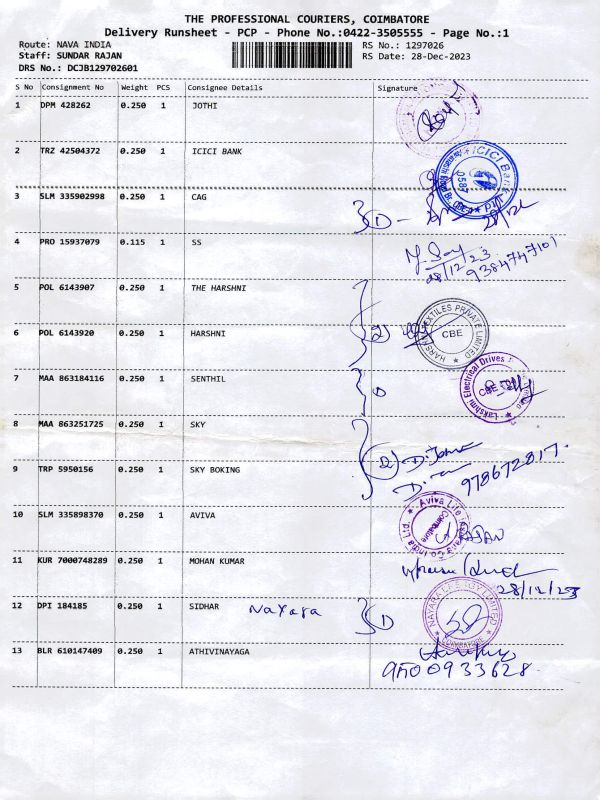 THE PROFESSIONAL COURIERS, COIMBATORE
Delivery Runsheet - PCP - Phone No.:0422-3505555 - Page No.:1
Route: NAVA INDIA RS No.: 1297026
Staff: SUNDAR RAJAN RS Date: 28-Dec-2023
DRS No.: DCJB129702601
S No Consignment No Weight PCS Consignee Details Signature
1 DPM 428262 0.250 1 JOTHI
2 TRZ 42504372 0.250 1 ICICI BANK
ICICI Bank
3 SLM 335902998 0.250 1 CAG
1
4 PRO 15937079 0.115 1 SS
28/12/23 9384747101
5 POL 6143907 0.250 1 THE HARSHNI
6 POL 6143920 0.250 1 HARSHNI 2
HARSHNI TEXTILES PRIVATE LIMITED
CBE
7 MAA 863184116 0.250 1 SENTHIL 1
Lakshmi Electrical Drives
8 MAA 863251725 0.250 1 SKY
9 TRP 5950156 0.250 1 SKY BOKING 2
978672817.
10 SLM 335898370 0.250 1 AVIVA
Aviva Life Insurance Co India Ltd.
Coimbatore
11 KUR 7000748289 0.250 1 MOHAN KUMAR
28/12/23
12 DPI 184185 0.250 1 SIDHAR Nayara 1
NAYARA ENERGY LIMITED
COIMBATORE
13 BLR 610147409 0.250 1 ATHIVINAYAGA
9500933628